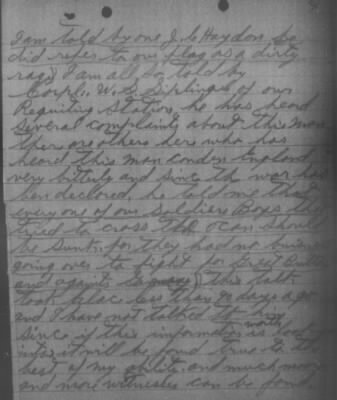 I am told by one J. C. Haydon he
did refer to our flag as a dirty
rag) I am all so told by
Corpl. W. S. Siplinge of our
Requiting Station, he has heard
several complaints about this man
there are others here who has
heard this man condem England
very bitterly and since the war has
ben declared, he told me that
every one of our Soldiers Boys that
tried to cross the ocan should
be sunk, for they had no buisnes
going over to fight for Great Britton
and against this talk
took place less than 90 days ago
and I have not talked to him
since if this information is worth
into it will be found true to the
best of my ability and much more
and more witnesses can be found.